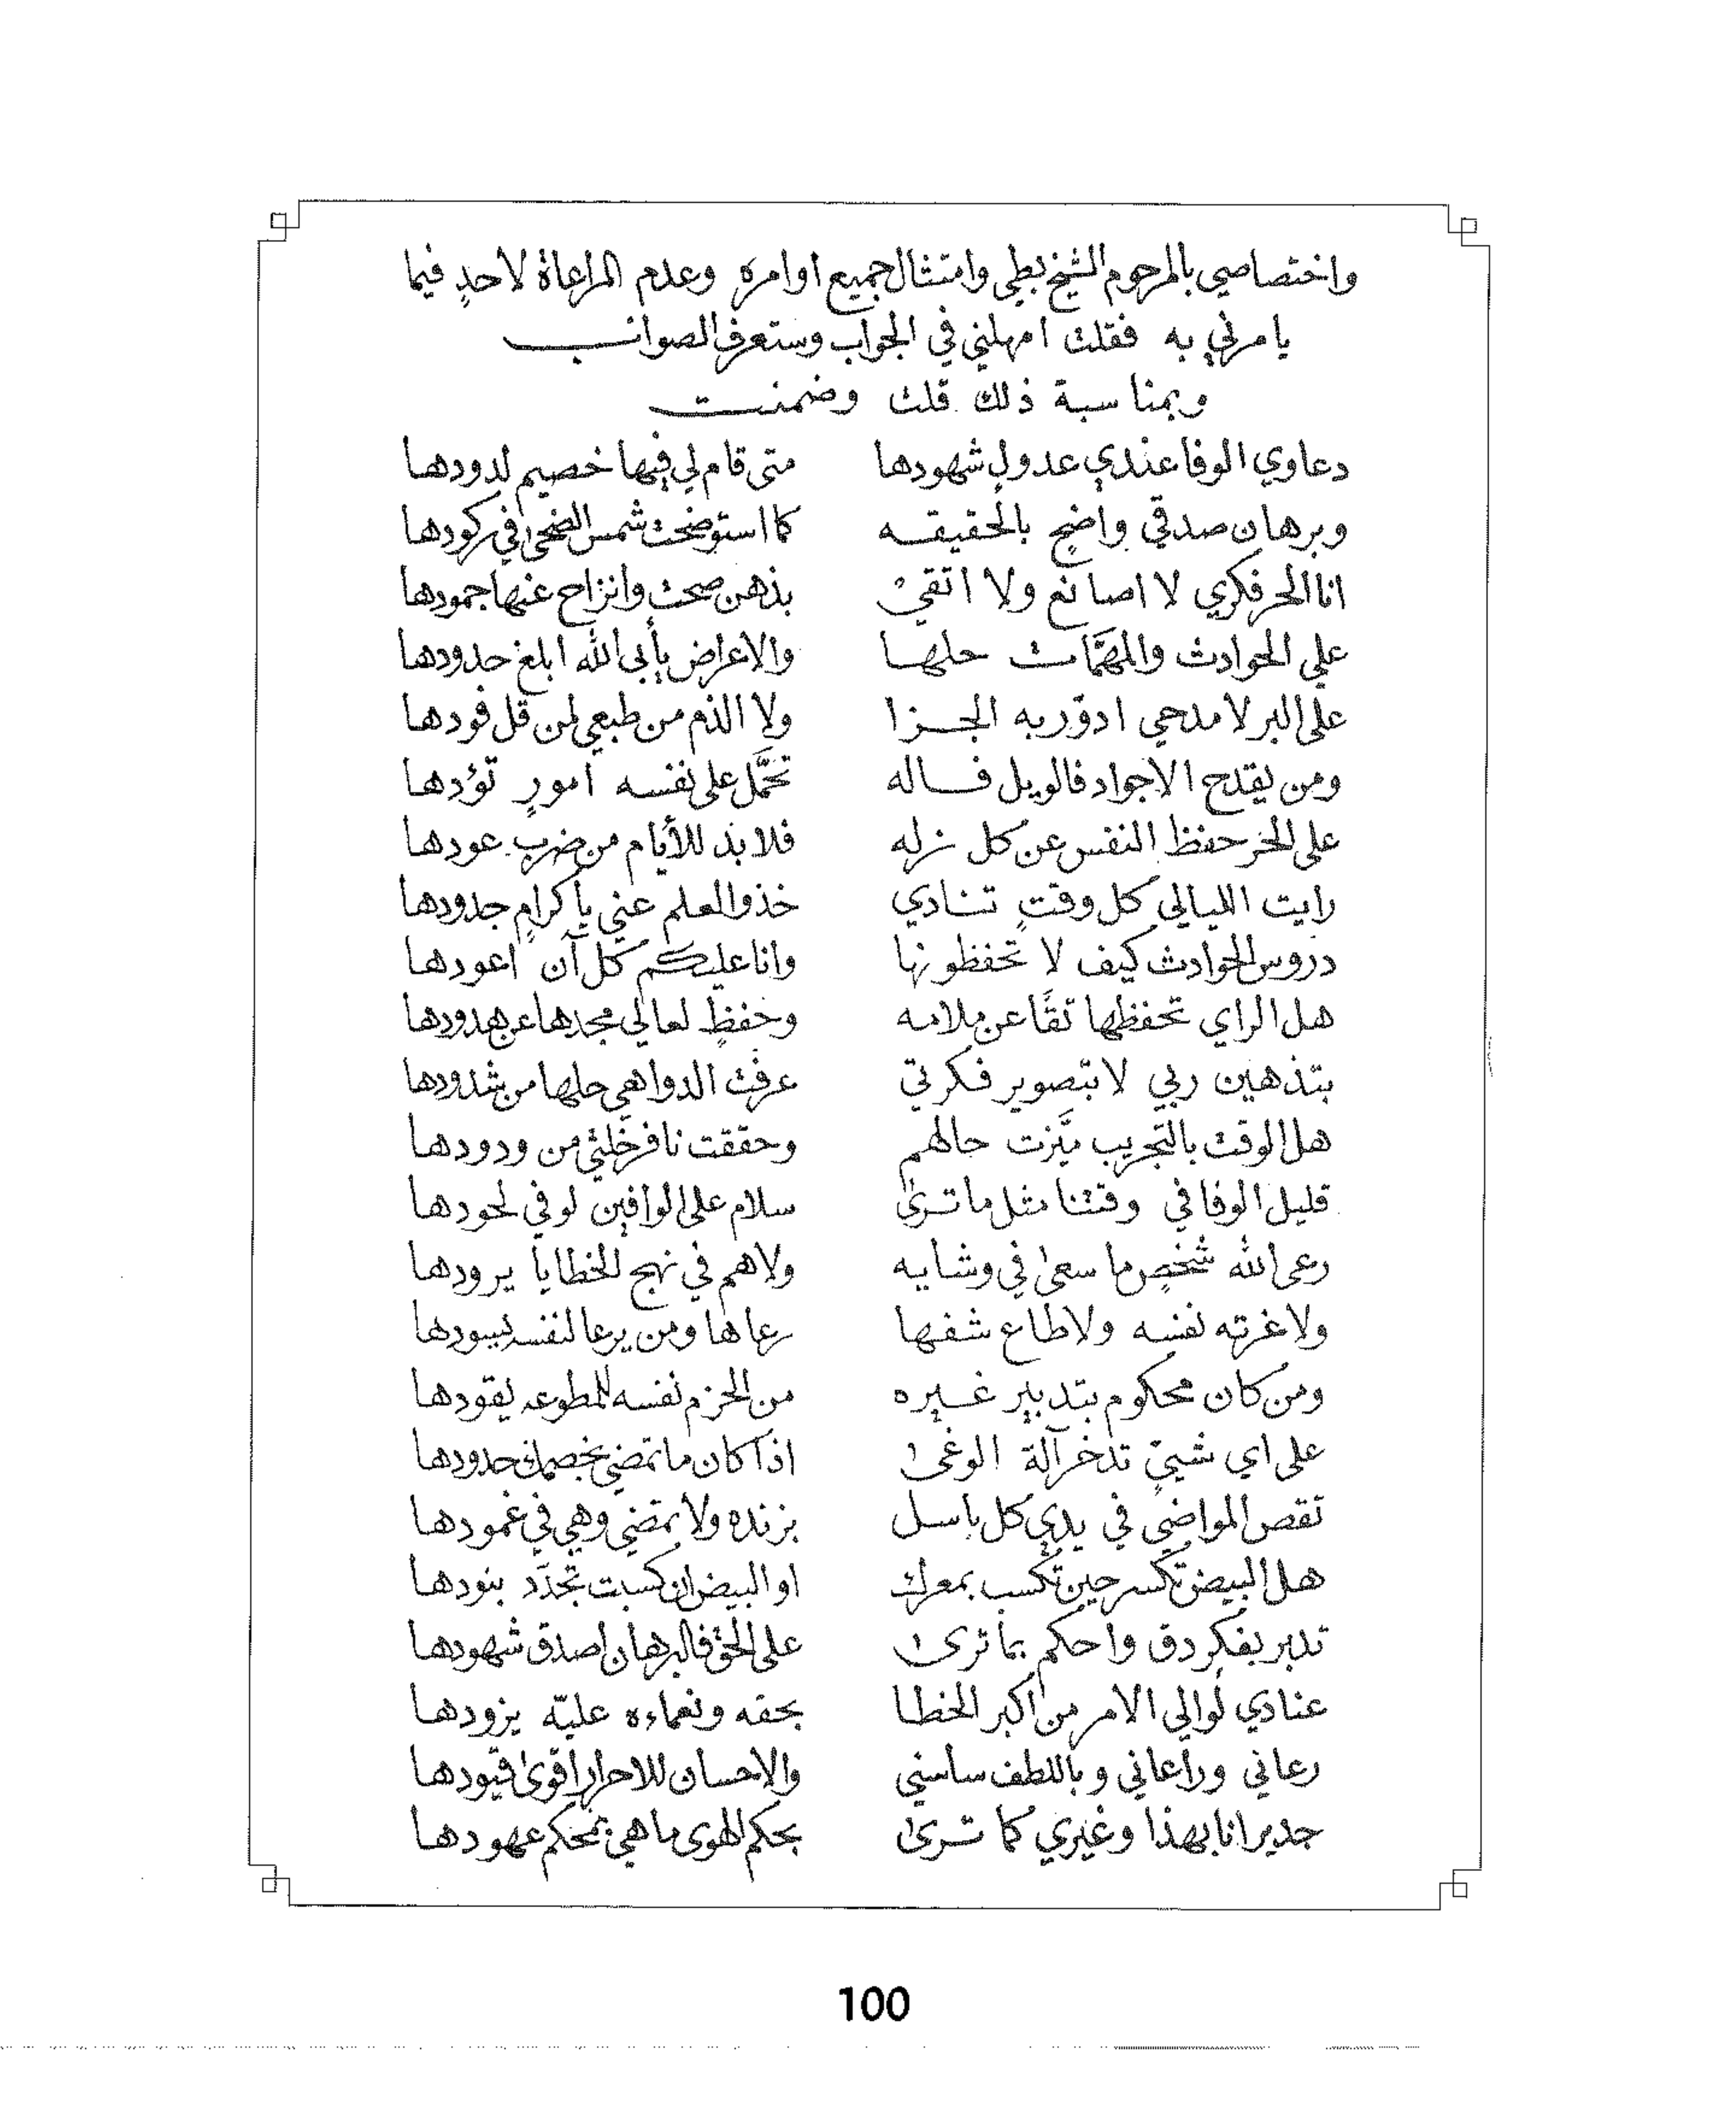 واختصاصي بالمرحوم الشيخ بطي وامتثال جميع اوامره وعدم المراعاة لاحدٍ فيما
يامرني به فقلت امهلني في الجواب وستعرف الصواب
وبمناسبة ذلك قلت وضمنت
دعاوي الوفا عندي عدولٍ شهودها متى قام لي فيها خصيم لدودها
وبرهان صدقي واضحٍ بالحقيقه كما استوضحت شمس الضحى في ركودها
انا الحر فكري لا اصانع ولا اتقي بذهن صحت وانزاح عنها جمودها
علي الحوادث والمهمَّات حلها والاعراض يأبى الله ابلغ حدودها
على البر لا مدحي ادوّر به الجزا ولا الذم من طبعي لمن قل فودها
ومن يقدح الاجواد فالويل فاله تحمَّل على نفسه امورٍ تؤدها
على الحر حفظ النفس عن كل نزله فلا بد للأيام من ضربٍ عودها
رايت الليالي كل وقتٍ تنادي خذوا العلم عني يا كرامٍ جدودها
دروس الحوادث كيف لا تحفظونها وانا عليكم كل آن اعودها
هل الراي تحفظها تقًا عن ملامه وحفظٍ لعالي مجدها عن هدودها
بتذهين ربي لا بتصوير فكرتي عرفت الدواهي حلها من شدودها
هل الوقت بالتجريب ميَّزت حالهم وحققت نافر خلتي من ودودها
قليل الوفا في وقتنا مثل ما ترى سلام على الوافين لو في لحودها
رعى الله شخصٍ ما سعى في وشايه ولاهم في نهج الخطايا يرودها
ولا غرته نفسه ولا طاع شفها رعاها ومن يرعا لنفسه يسودها
ومن كان محكوم بتدبير غيره من الحزم نفسه للمطوعه يقودها
على اي شيءٍ تدخر آلة الوغى اذا كان ما تمضي بخصمك حدودها
تقص المواضي في يدي كل باسل بزنده ولا تمضي وهي في غمودها
هل البيض تكسر حين تكسب بمعرك او البيض ان كسبت تجدّد بنودها
تدبر بفكر دق واحكم بما ترى على الحق فالبرهان اصدق شهودها
عنادي لوالي الامر من اكبر الخطا بحقه ونعماءه عليّه يزودها
رعاني وراعاني وباللطف ساسني والاحسان للاحرار اقوى قيودها
جدير انا بهذا وغيري كما ترى بحكم الهوى ما هي بمحكم عهودها
100